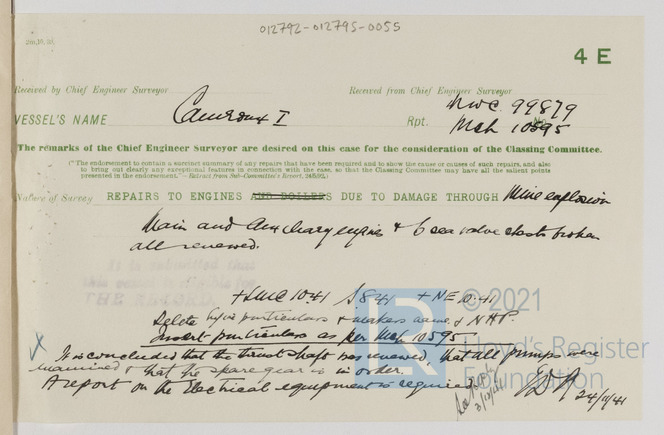 012792-012795-0055
4 E
Received by Chief Engineer Surveyor
Received from Chief Engineer Surveyor
VESSEL'S NAME Cameroux I
Rpt. Nwc. 99879
Mch 10595
The remarks of the Chief Engineer Surveyor are desired on this case for the consideration of the Classing Committee.
("The endorsement to contain a succinct summary of any repairs that have been required and to show the cause or causes of such repairs, and also
to bring out clearly any exceptional features in connection with the case, so that the Classing Committee may have all the salient points
presented in the endorsement."—Extract from Sub-Committee's Report.
Nature of Survey REPAIRS TO ENGINES AND BOILERS DUE TO DAMAGE THROUGH Mine explosion
Main and Auxiliary engine & 6 sea valve chests broken
all renewed.
It is submitted that
this vessel is eligible for
THE RECORD
+LMC 10.41 S 8.41 +NE 10.41
Delete engine particulars & makers name & NHP.
Insert particulars as per Mch 10595
X It is concluded that the thrust shaft was renewed, that all pumps were
examined & that the spare gear is in order.
A report on the Electrical equipment is required.
24/11/41
© 2021
Lloyd's Register
Foundation